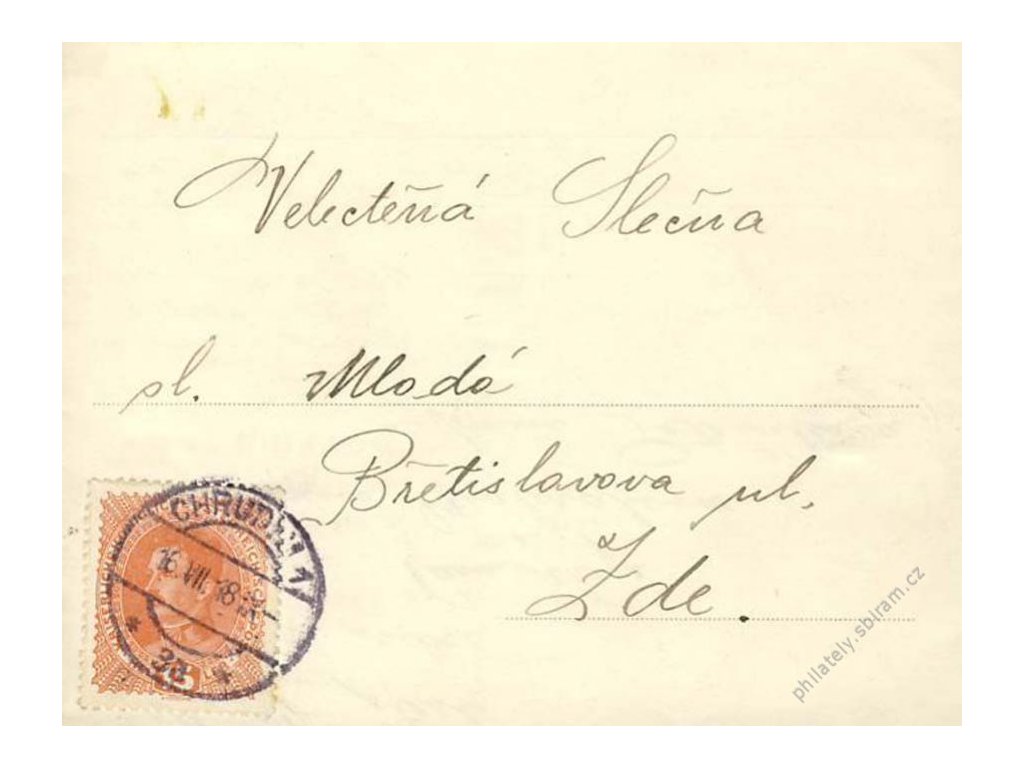 Velectěná Slečna
sl. Mladá
Břetislavova ul.
Zde.
CHRUDIM 1
16.VIII.18
2a
15
philately.sbiram.cz